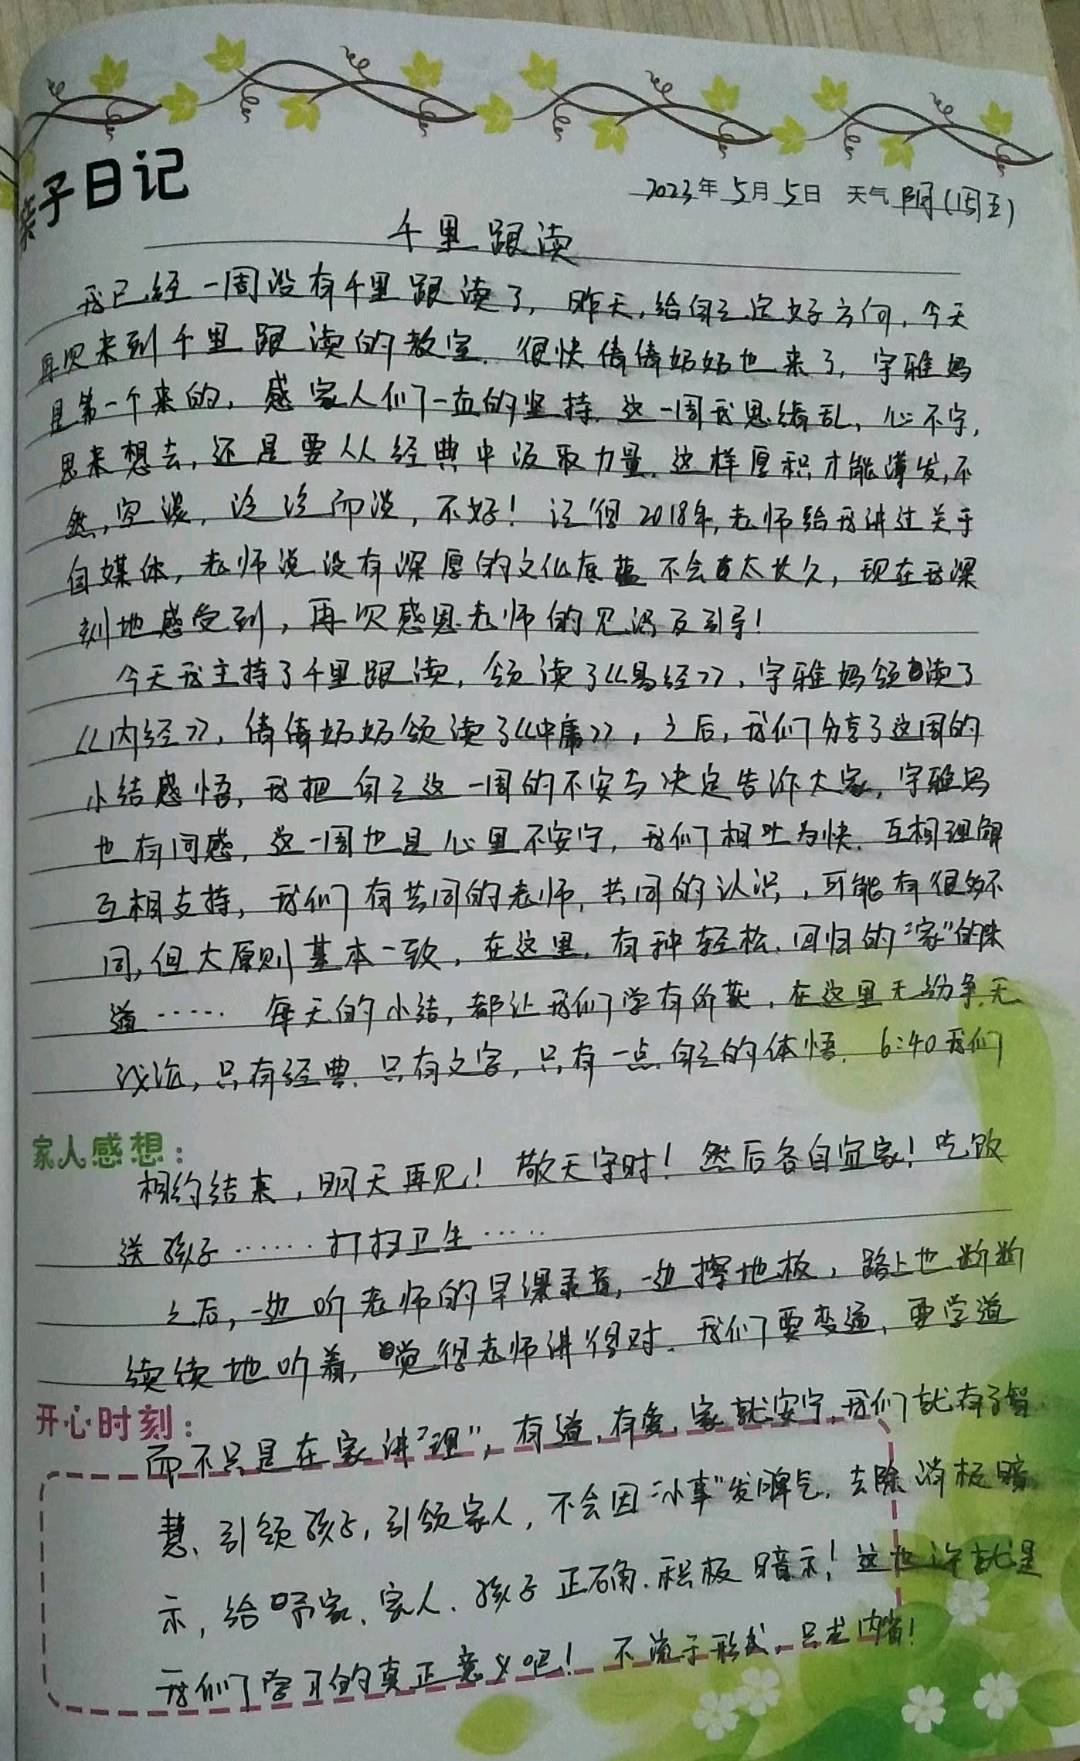 亲子日记
2023年5月5日 天气 阴(周五)
千里跟读
我已经一周没有千里跟读了，昨天，给自己定好方向，今天
再次来到千里跟读的教室．很快倩倩奶奶也来了，宇雅妈
是第一个来的，感家人们一直的坚持．这一周我思绪乱，心不宁，
思来想去，还是要从经典中汲取力量．这样厚积才能薄发，不
然，空洞，泛泛而谈，不好！记得2018年，老师给我讲过关于
自媒体，老师说没有深厚的文化底蕴不会太长久，现在我深
刻地感受到，再次感恩老师的见识及引导！
今天我主持了千里跟读，领读了《易经》，宇雅妈领读了
《内经》，倩倩奶奶领读了《中庸》，之后，我们分享了这周的
小结感悟，我把自己这一周的不安与决定告诉大家，宇雅妈
也有同感，这一周也是心里不安宁，我们相吐为快．互相理解
互相支持，我们有共同的老师，共同的认识，可能有很多不
同，但大原则基本一致，在这里，有种轻松，回归的“家”的味
道…… 每天的小结，都让我们学有所获，在这里无纷争，无
议论，只有经典．只有文字，只有一点自己的体悟．6:40我们
家人感想：
相约结束，明天再见！敬天守时！然后各自宜家！吃饭
送孩子……打扫卫生……
之后，一边听老师的早课录音，一边擦地板，路上也断断
续续地听着，觉得老师讲得对．我们要变通，要学道
开心时刻：
而不只是在家讲“理”，有道，有爱，家就安宁，我们就有了智
慧、引领孩子，引领家人，不会因“小事”发脾气，去除消极暗
示，给家、家人、孩子正确．积极暗示！这也许就是
我们学习的真正意义吧！不流于形式，只求内省！